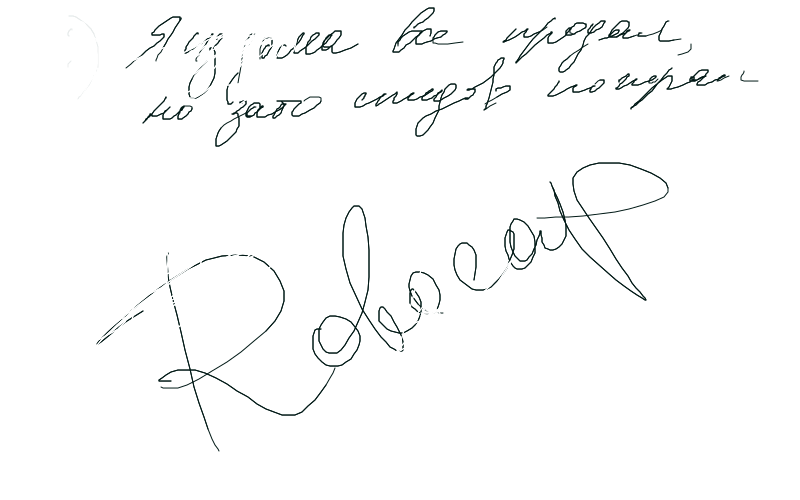 Я из дома все продал,
но зато спидов поиграл
Robocap